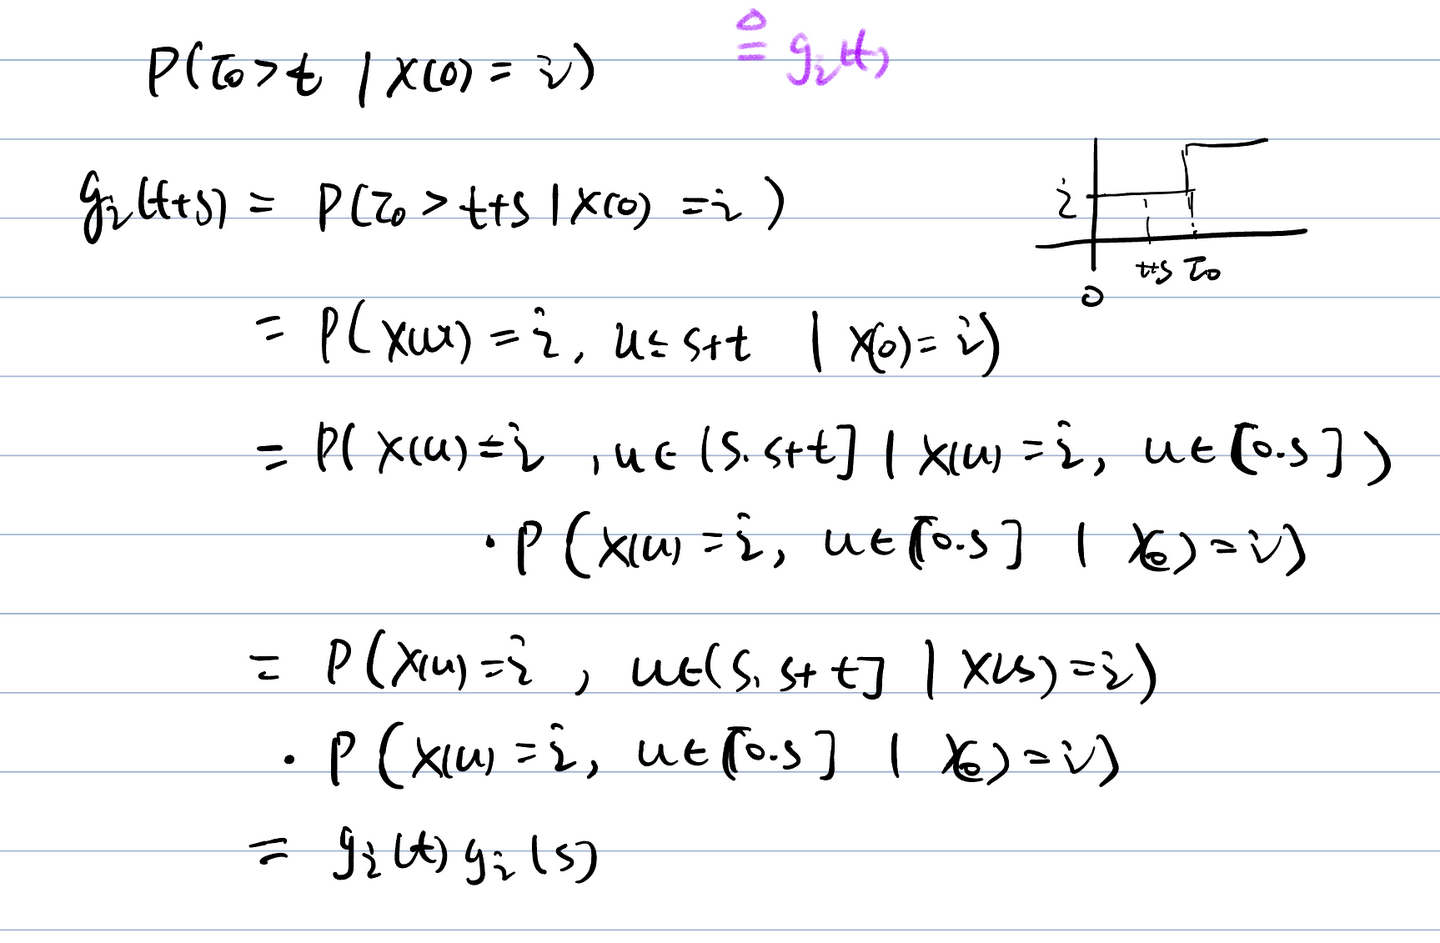 P(τ₀ > t | X(0) = i) ≜ gᵢ(t)
gᵢ(t+s) = P(τ₀ > t+s | X(0) = i)
i
t+s τ₀
0
= P(X(u) = i, u ≤ s+t | X(0) = i)
= P(X(u) = i, u ∈ (s, s+t] | X(u) = i, u ∈ [0, s])
· P(X(u) = i, u ∈ [0, s] | X(0) = i)
= P(X(u) = i, u ∈ (s, s+t] | X(s) = i)
· P(X(u) = i, u ∈ [0, s] | X(0) = i)
= gᵢ(t) gᵢ(s)